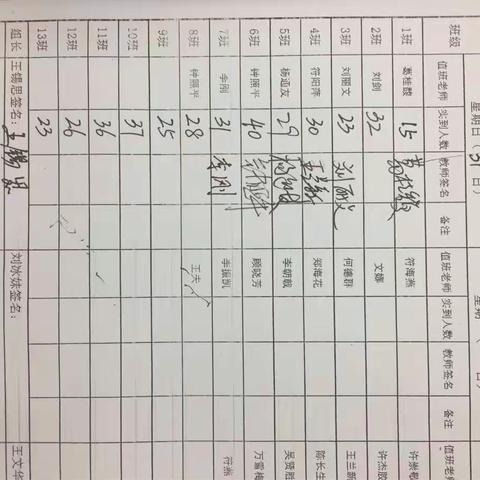 星期日（31日） 星期 日）
班级 值班老师 实到人数 教师签名 备注 值班老师 实到人数 教师签名 备注 值班老师
1班 葛桂馥 15 符海燕
2班 刘剑 32 文娜
3班 刘丽文 23 刘丽文 何德群 王兰新
4班 符阳萍 30 郑海花 陈长生
5班 杨涵友 29 李朝戟 吴贤胜
6班 钟照平 40 顾晓芳 万雪梅
7班 李刚 31 李刚 李振凯 符燕
8班 钟照平 28 王夫
9班 25
10班 37
11班 36
12班 26
13班 23
组长 王锡思签名：王锡思 刘冰妹签名： 王文华